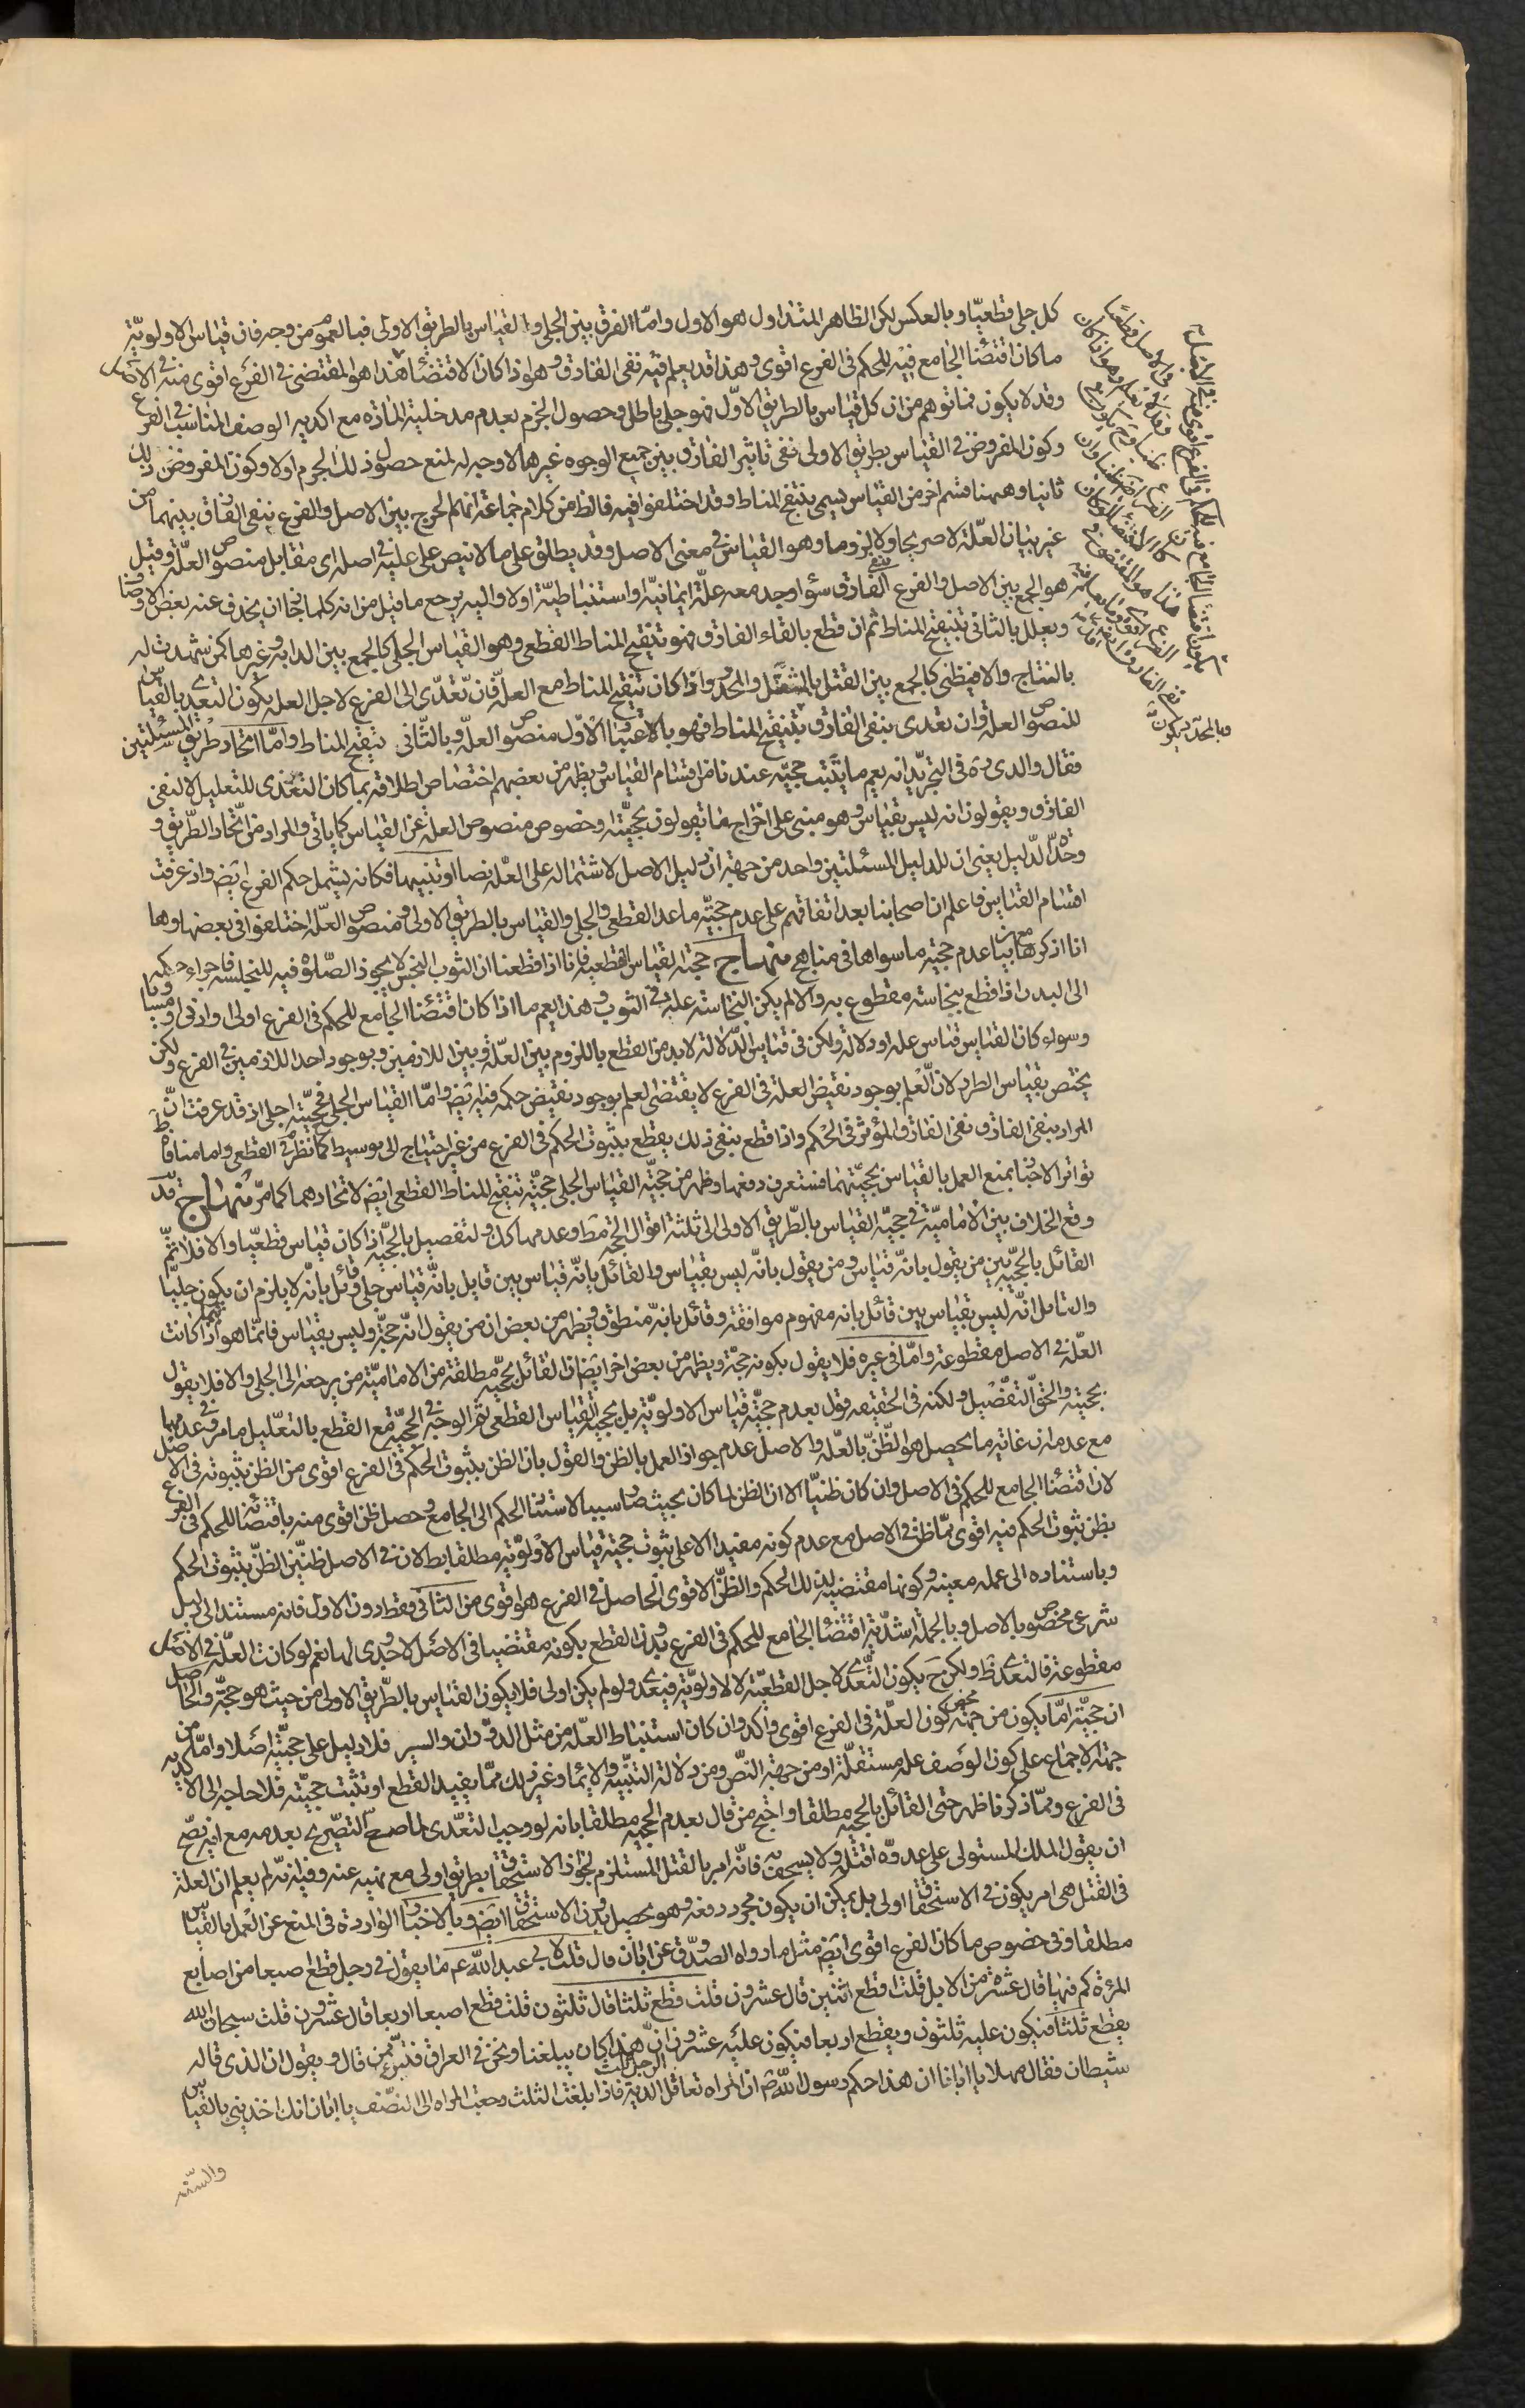 كل جلى قطعيّا وبالعكس لكن الظاهر المتداول هو الاول وامّا الفرق بين الجلى والقياس بالطريق الاولى فبالعموم من وجه فان قياس الاولويّة
ما كان اقتضاء الجامع فيه للحكم فى الفرع اقوى وهذا قد يعلم فيه نفى الفارق وهو اذا كان لاقتضاء هذا هو المقتضى فى الفرع اقوى منه فى الاصل
وقد لا يكون فما توهم من ان كل قياس بالطريق الاوّل فهو جلى باطل وحصول الجزم بعدم مدخلية المادة مع اكدية الوصف المناسب فى الفرع
وكون المفروض فى القياس بطريق الاولى نفى تاثير الفارق بين جميع الوجوه غيرها لا وجه له لمنع حصول ذلك الجزم اولا وكون المفروض ذلك
ثانيا وههنا قسم اخر من القياس يسمى بتنقيح المناط وقد اختلفوا فيه فالظ من كلام جماعة انه الجمع بين الاصل والفرع بنفى الفارق بينهما من
غير بيان العلّة لا صريحا ولا لزوما وهو القياس فى معنى الاصل وقد يطلق على ما لا نص على عليّة اصله اى مقابل منصوص العلّة وقيل
هو الجمع بين الاصل والفرع بنفى الفارق سواء وجد معه علّة ايمائيّة او استنباطيّة اولا واليه يرجع ما قيل من انه كلما جاز ان يحذف عنه بعض الاوصاف
ويعلل بالثانى تنقيح المناط ثم ان قطع بالقاء الفارق فهو تنقيح المناط القطعى وهو القياس الجلى كالجمع بين الدابة وغيرها كمن شهدت له
بالنتاج والا فيظنى كالجمع بين القتل بالمثقل والمحدد واذا كان تنقيح المناط مع العلّة فان تعدّى الى الفرع لاجل العلة يكون التعدى بالقياس
المنصوص العلة وان تعدى بنفى الفارق بتنقيح المناط فهو بالاعتبار الاوّل منصوص العلة وبالثانى تنقيح المناط وامّا اتحاد طريق المسئلتين
فقال والدى ره فى التجريد انه يعم ما يثبت حجيّته عندنا من اقسام القياس ويظهر من بعضهم اختصاص اطلاقه بما كان التعدى للتعليل لا لنفى
الفارق ويقولون انه ليس بقياس وهو مبنى على اخراج ما يقولون بحجيّته وخصوص منصوص العلة عن القياس كما ياتى والمراد من اتحاد الطريق و
وحدة الدليل يعنى ان للدليل المسئلتين واحد من جهة ان دليل الاصل لاشتماله على العلّة نصا او تنبيها فكانه يشمل حكم الفرع ايض واذ عرفت
اقسام القياس فاعلم ان اصحابنا بعد اتفاقهم على عدم حجيّة ما عدا القطعى والجلى والقياس بالطريق الاولى ومنصوص العلّة اختلفوا فى بعضها وها
انا اذكرها مع بيان عدم حجية ما سواها فى مناهج منهاج حجة القياس القطعية فانا اذا قطعنا ان الثوب النجس لا يجوز الصّلوة فيه للنجاسة فاجراء حكمه
الى البدن اذا قطع بنجاسته مقطوع به والا لم يكن النجاسة علة فى الثوب وهذا يعم ما اذا كان اقتضاء الجامع للحكم فى الفرع اولى او ادنى او مساويا
وسواء كان القياس قياس علة او دلالة ولكن فى قياس الدّلالة لا بد من القطع باللزوم بين العلّة وبين اللازمين وبوجود احد اللازمين فى الفرع ولكن
يختص بقياس الطرد لان العلم بوجود نقيض العلة فى الفرع لا يقتضى العلم بوجود نقيض حكمه فيه ايض وامّا القياس الجلى فحجيّته اجلى اذ قد عرفت ان
المراد بنفى الفارق نفى الفارق المؤثر فى الحكم واذا قطع بنفى ذلك يقطع بثبوت الحكم فى الفرع من غير احتياج الى توسيط كما نظر فى القطعى واما منافاة
تواتر الاخبار بمنع العمل بالقياس بحجيّتهما فستعرف دفعها وظهر من حجيّة القياس الجلى حجيّة تنقيح المناط القطعى ايض لاتحادهما كما مرّ منهاج قد
وقع الخلاف بين الاماميّة فى حجيّة القياس بالطريق الاولى الى ثلثة اقوال الحجية مط وعدمها كذلك والتفصيل بالحجيّة اذا كان قياس قطعيّا والا فلا ثم
القائل بالحجيّة بين من يقول بانّه قياس ومن يقول بانّه ليس بقياس والقائل بانّه قياس بين قايل بانّه قياس جلى وقائل بانّه لا يلزم ان يكون جليّا
والقائل انّه ليس بقياس بين قائل بانه مفهوم موافقة وقائل بانه منطوق ويظهر من بعض ان من يقول انّه حجّة وليس بقياس فانمّا هو فيما اذا كانت
العلّة فى الاصل مقطوعة وامّا فى غيره فلا يقول بكونه حجّة ويظهر من بعض اخر ايض ان القائل بحجيّة مطلقة من الاماميّة من يرجعه الى الجلى والا فلا يقول
بحجيته والحق التفصيل ولكنه فى الحقيقه قول بعدم حجيّة قياس الاولويّة بل بحجية القياس القطعى ثم الوجه فى الحجيّة مع القطع بالتعليل ما مر وفى عدمها
مع عدمه ان غاية ما يحصل هو الظنّ بالعلّة والاصل عدم جواز العمل بالظن والقول بان الظن بثبوت الحكم فى الفرع اقوى من الظن بثبوته فى الاصل
لان اقتضاء الجامع للحكم فى الاصل وان كان ظنيّا الا ان الظن لما كان بحيث صار سببا لاستناد الحكم الى الجامع وحصل ظن اقوى منه باقتضائه للحكم فى الفرع
يظن ثبوت الحكم فيه اقوى ممّا ظن فى الاصل مع عدم كونه مفيدا الا على ثبوت حجية قياس الاولويّة مطلقا بط لان فى الاصل ظنّين الظنّ بثبوت الحكم
وباستناده الى علة معينة وكونها مقتضية لذلك الحكم والظنّ الاقوى الحاصل فى الفرع هو اقوى من الثانى فقط دون الاول فانه مستند الى دليل
شرعى مخصوص بالاصل وبالجملة اشدّية اقتضاء الجامع للحكم فى الفرع بدون القطع بكونه مقتضيا فى الاصل لا جدوى لها نعم لو كانت العلّة فى الاصل
مقطوعة فالتعدى ظ ولكن ح يكون التّعدى لاجل القطعيّة لا الاولويّة فيتعدى ولو لم يكن اولى فلا يكون القياس بالطّريق الاولى من حيث هو حجّة والحاصل
ان حجيّته امّا يكون من جهة محض كون العلّة فى الفرع اقوى واكد وان كان استنباط العلّة من مثل الدوران والسبر فلا دليل على حجيّته اصلا وامّا من
جهة الاجماع على كون الوصف علة مستقلّة او من جهة النصّ ومن دلالة التنبيه والايماء وغير ذلك ممّا يفيد القطع او تثبت حجيّته فلا حاجة الى الاكدية
فى الفرع وممّا ذكرنا ظهر حتى القائل بالحجية مطلقا واحتج من قال بعدم الحجية مطلقا بانه لو وجب التعدّى لما صح التصريح بعدمه مع انه يصح
ان يقول الملك المستولى على عدوّه اقتله ولا يستحقر فانّه امر بالقتل المستلزم لجواز الاستحقار بطريق اولى مع نهيه عنه وفيه انه لم يعلم ان العلة
فى القتل هى امر يكون فى الاستحقار اولى بل يمكن ان يكون مجرد دفعه وهو يحصل بدون الاستحقار ايض وبالاخبار الواردة فى المنع عن العمل بالقياس
مطلقا وفى خصوص ما كان الفرع اقوى ايض مثل ما رواه الصدوق عن ابان قال قلت لابى عبد الله عم ما يقول فى رجل قطع اصبعا من اصابع
المرئة كم فيها قال عشرة من الابل قلت اقطع اثنين قال عشرون قلت قطع ثلثا قال ثلثون قلت قطع اصبعا اربعا قال عشرون قلت سبحان الله
يقطع ثلثا فيكون عليه ثلثون ويقطع اربعا فيكون عليه عشرون ان هذا كان يبلغنا ونحن فى العراق فنتبرء ممن قال ويقول ان الذى قاله
شيطان فقال مهلا يا ابان ان هذا حكم رسول الله ص ان المراة تعاقل الرجل ثلث الدية فاذا بلغت الثلث رجعت المراة الى النصف يا ابان انك اخذتنى بالقياس
والسّنّة